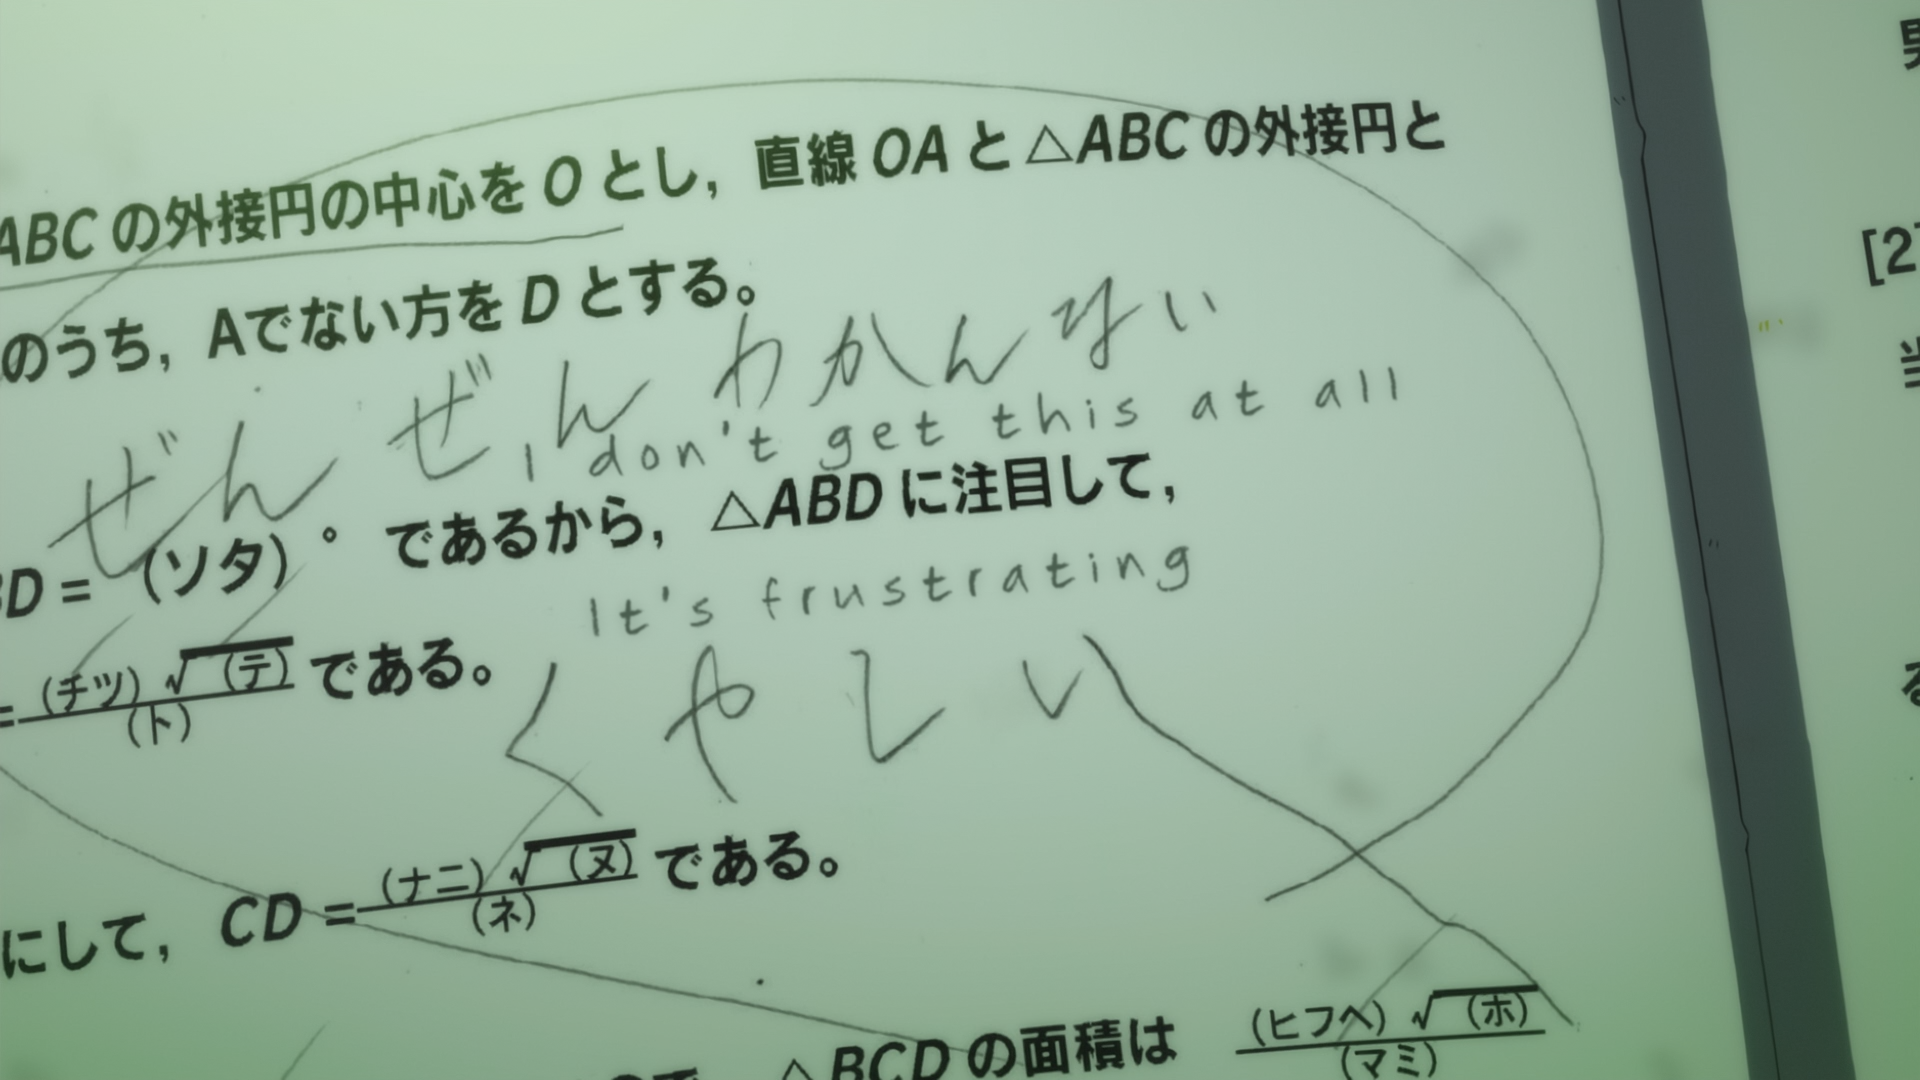 ABCの外接円の中心をOとし，直線OAと△ABCの外接円と
のうち，Aでない方をDとする。
ぜんぜんわかんない
I don't get this at all
BD = (ソタ)° であるから，△ABDに注目して，
It's frustrating
= (チツ)√(テ) / (ト) である。
くやしい
にして，CD = (ナニ)√(ヌ) / (ネ) である。
△BCDの面積は (ヒフヘ)√(ホ) / (マミ)
[2